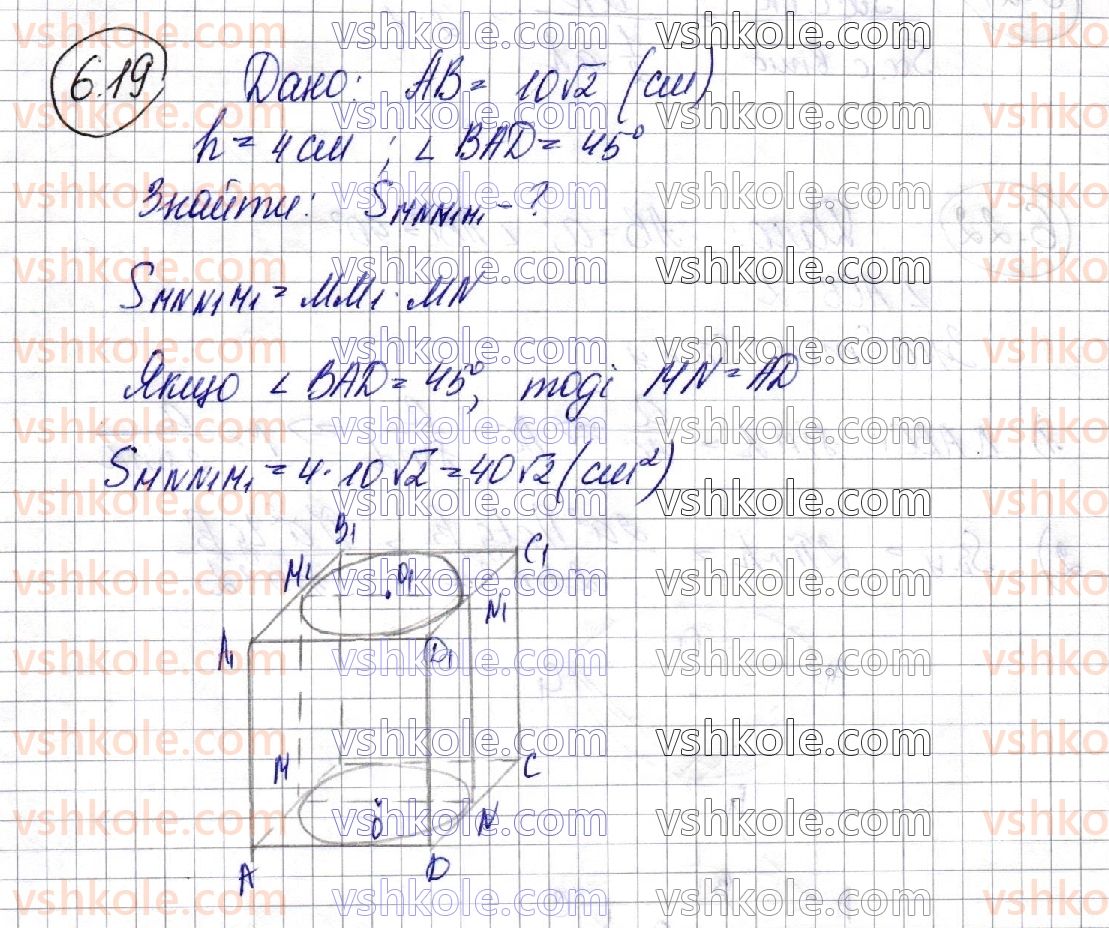 6.19 Дано: AB = 10√2 (см)
h = 4 см ; ∠ BAD = 45°
Знайти: S_MNN₁M₁ - ?
S_MNN₁M₁ = MM₁ · MN
Якщо ∠ BAD = 45°, тоді MN = AD
S_MNN₁M₁ = 4 · 10√2 = 40√2 (см²)
B₁
C₁
M₁
O₁
N₁
A₁
D₁
M
C
O
N
A
D
vshkole.com